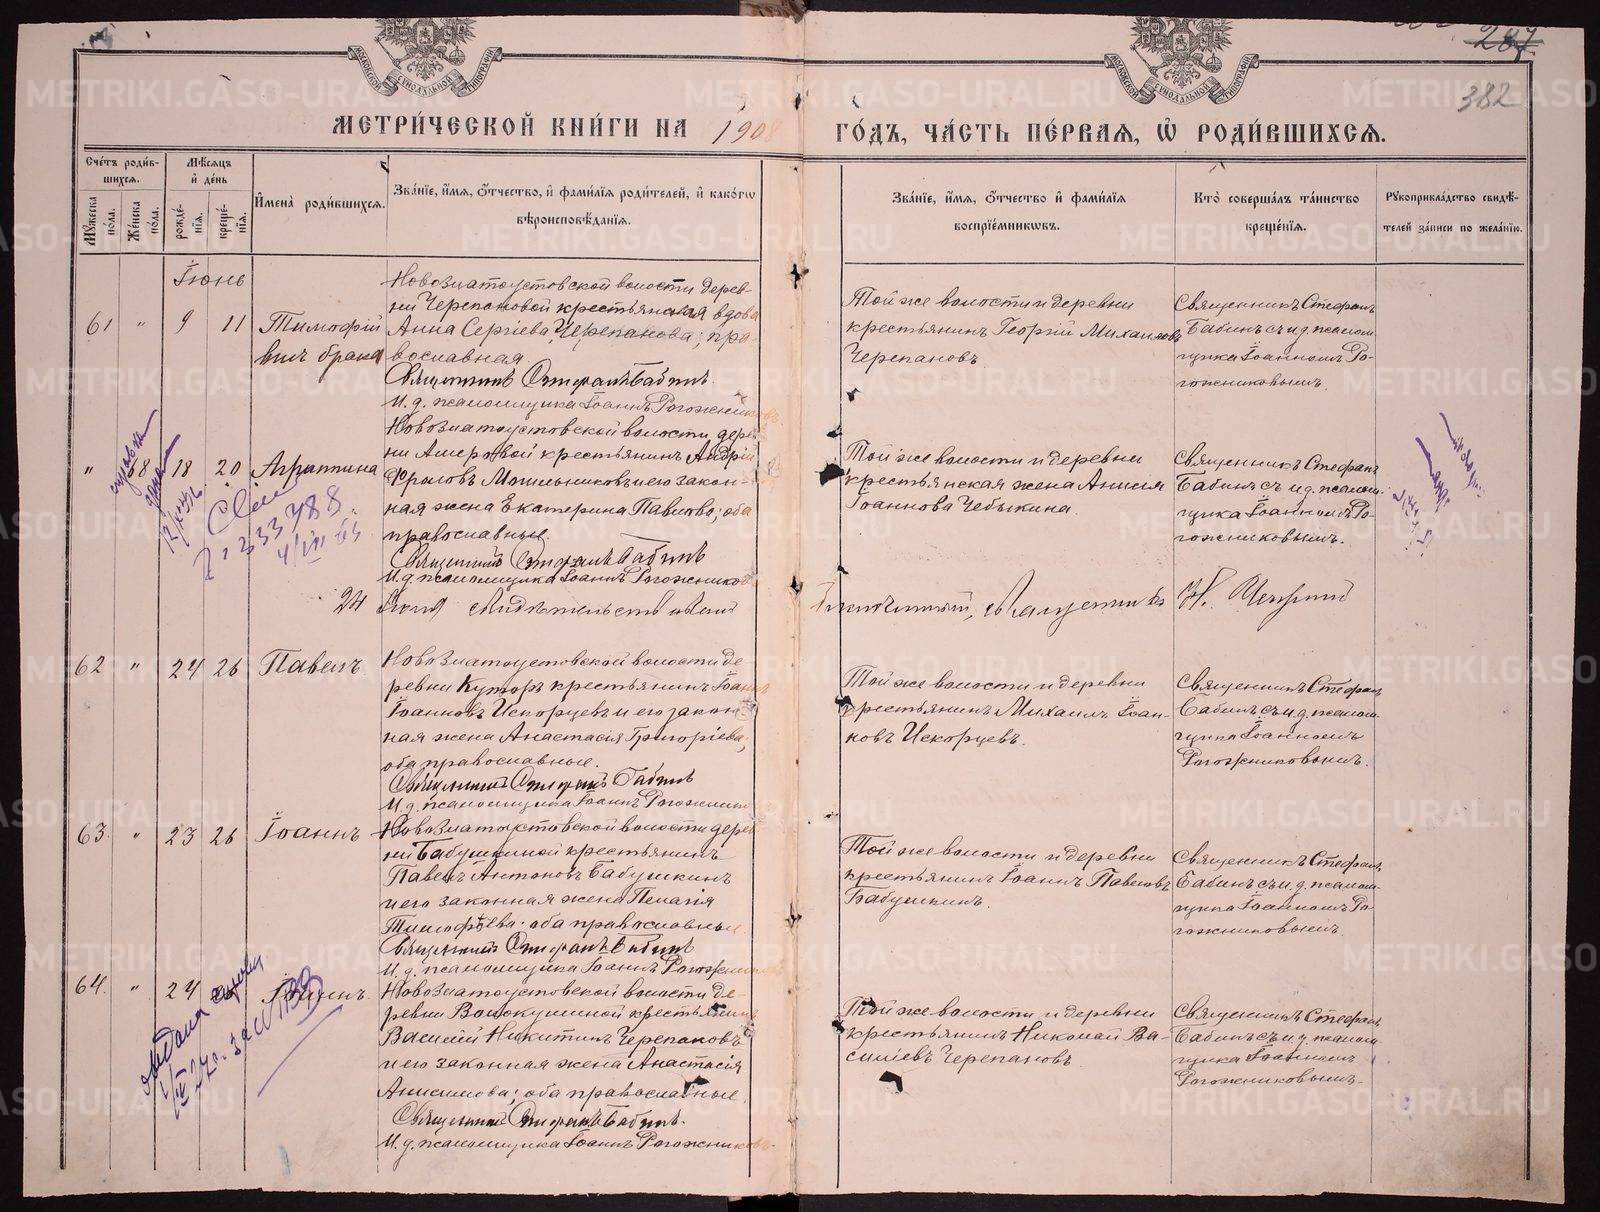 287
382
МОСКОВСКОЙ СѴНОДАЛЬНОЙ ТИПОГРАФІИ
МОСКОВСКОЙ СѴНОДАЛЬНОЙ ТИПОГРАФІИ
МЕТРИ́ЧЕСКОЙ КНИ́ГИ НА 1908 ГО́ДЪ, ЧА́СТЬ ПЕ́РВАЯ, Ѡ҆ РОДИ́ВШИХСЯ.
Сче́тъ роди́в-
шихся.
Му́жеска по́ла.
Же́нска по́ла.
Мѣ́сяцъ
и҆ де́нь
рожде́-
нїя.
креще́-
нїя.
И҆мена̀ роди́вшихся.
Зва́нїе, и҆́мя, о҆́тчество, и҆ фами́лїя роди́телей, и҆ како́гѡ
вѣроисповѣ́данїя.
Зва́нїе, и҆́мя, о҆́тчество и҆ фами́лїя
воспрїе́мникѡвъ.
Кто̀ соверша́лъ та́инство
креще́нїя.
Рꙋкоприкла́дство свидѣ́-
телей за́писи по жела́нїю.
Іюнь
61 " 9 11 Тимофій
внѣ брака
Новозлатоустовской волости дерев-
ни Черепановой крестьянская вдова
Анна Сергіева Черепанова; пра-
вославная.
Священникъ Стефанъ Бабинъ.
И. д. псаломщика Іоаннъ Рогожников
Той же волости и деревни
крестьянинъ Георгій Михаиловъ
Черепановъ
Священникъ Стефанъ
Бабинъ съ и. д. псалом-
щика Іоанномъ Ро-
гожниковымъ.
" 58 18 20 Агриппина
Новозлатоустовской волости дерев-
ни Амеровой крестьянинъ Андрій
Фроловъ Мотыльниковъ и его закон-
ная жена Екатерина Павлова; оба
православные.
Священникъ Стефанъ Бабинъ
И. д. псаломщика Іоаннъ Рогожников
Той же волости и деревни
крестьянская жена Анисія
Іоаннова Чебыкина
Священникъ Стефанъ
Бабинъ съ и. д. псалом-
щика Іоанномъ Ро-
гожниковымъ.
24 Іюня
62 " 24 26 Павелъ
Новозлатоустовской волости де-
ревни Куторъ крестьянинъ Іоаннъ
Іоанновъ Искорцевъ и его закон-
ная жена Анастасія Григоріева;
оба православные.
Священникъ Стефанъ Бабинъ
И. д. псаломщика Іоаннъ Рогожников
Той же волости и деревни
крестьянинъ Михаилъ Іоан-
новъ Искорцевъ.
Священникъ Стефанъ
Бабинъ съ и. д. псалом-
щика Іоанномъ
Рогожниковымъ.
63. " 23 26 Іоаннъ
Новозлатоустовской волости дерев-
ни Бабушкиной крестьянинъ
Павелъ Антоновъ Бабушкинъ
и его законная жена Пелагія
Тимофѣева; оба православные
Священникъ Стефанъ Бабинъ
И. д. псаломщика Іоаннъ Рогожников
Той же волости и деревни
крестьянинъ Іоаннъ Павловъ
Бабушкинъ.
Священникъ Стефанъ
Бабинъ съ и. д. псалом-
щика Іоанномъ Ро-
гожниковымъ
64. " 24 Іоаннъ
Новозлатоустовской волости де-
ревни Волокушиной крестьянинъ
Василій Никитинъ Черепановъ
и его законная жена Анастасія
Анисимова; оба православные
Священникъ Стефанъ Бабинъ.
И. д. псаломщика Іоаннъ Рогожников
Той же волости и деревни
крестьянинъ Николай Ва-
силіевъ Черепановъ
Священникъ Стефанъ
Бабинъ съ и. д. псалом-
щика Іоанномъ
Рогожниковымъ.
METRIKI.GASO-URAL.RU